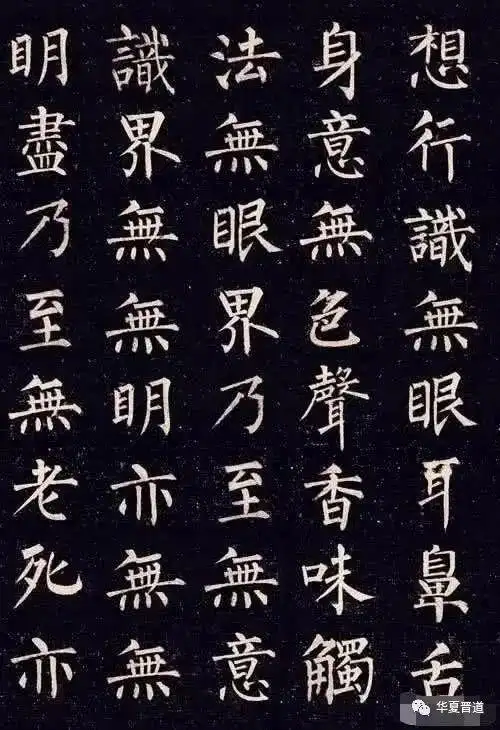 想行識無眼耳鼻舌
身意無色聲香味觸
法無眼界乃至無意
識界無無明亦無無
明盡乃至無老死亦
华夏晋道